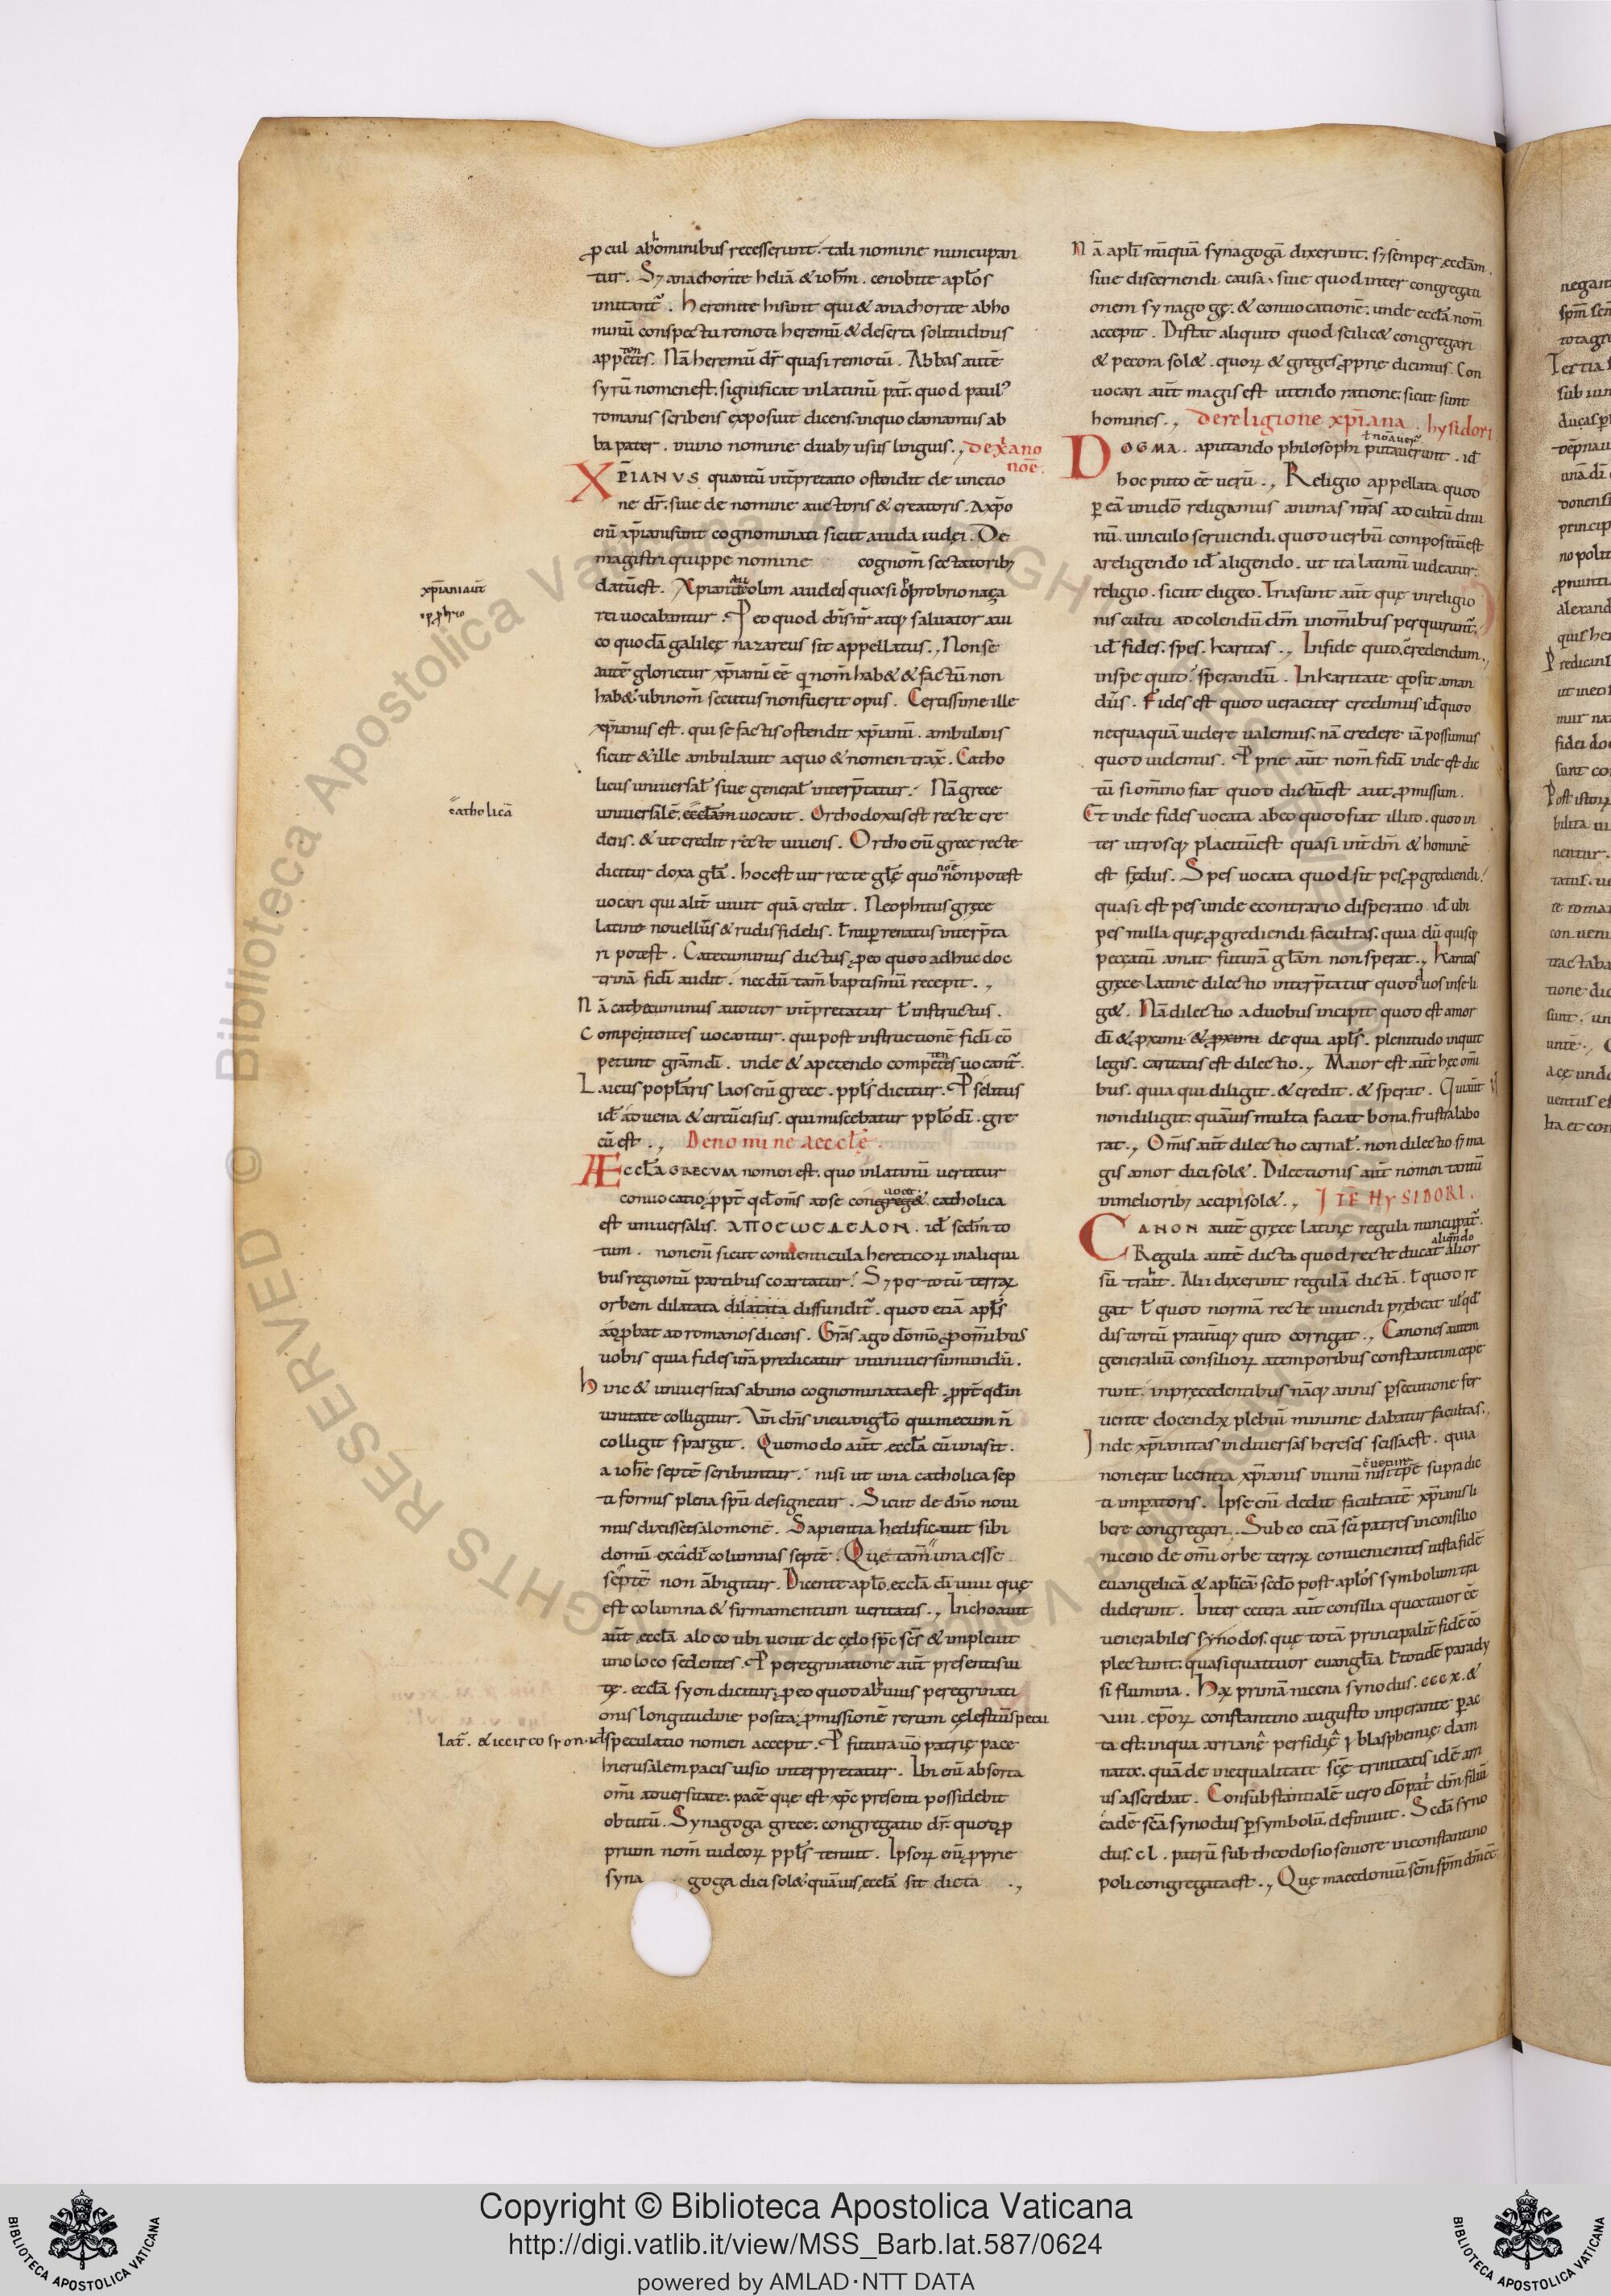 ꝓcul abhominibus recesserunt. tali nomine nuncupan
tur. Sꝫ anachorite heliā & ioħm. cenobite apłos
imitant᷑. Heremite hi sunt qui & anachorite ab ho
minū conspectu remoti heremū & deserta solitudinis
appetentes. Nā heremū dr̄ quasi remotū. Abbas autē
syrū nomen est. significat in latinū pat̄. quod paulꝰ
romanis scribens exposuit dicens. in quo clamamus ab
ba pater. in uno nomine duabꝫ usus linguis., de xp̄ano
noe.
XP̄IANVS quantū int̄pretatio ostendit de unctio
ne dr̄. siue de nomine auctoris & creatoris. A xp̄o
eni xp̄iani sunt cognominati sicut a iuda iudei. De
magistri quippe nomine cognom̄ sectatoribꝫ
datū est. Xpiani aut olim a iudeis quasi obprobrio naza
rei vocabantur. P eo quod dn̄s nr̄ atqꝫ saluator a ui
co quodā galileę nazareus sit appellatus., Non se
autē glorietur xp̄ianū eē q nom̄ hab& & factū non
hab&. ubi nom̄ secutus non fuerit opus. Certissime ille
xp̄ianus est. qui se factis ostendit xp̄ianū. ambulans
sicut & ille ambulauit a quo & nomen trax̄. Catho
licus uniuersał siue generał interp̄tatur. Nā grece
uniuersalē. eccłam uocant. Orthodoxus est recte cre
dens. & ut credit recte uiuens. Ortho eni grece recte
dicitur doxa gła. hoc est uir recte głę quo noē non potest
uocari qui alit̄ uiuit quā credit. Neophitus gręce
latine nouellus & rudis fidelis. ł nup renatus interp̄ta
ri potest. Catecuminus dictus ꝓ eo quod adhuc doc
trinā fidī audit. necdū tam̄ baptismū recepit.,
Nā cathecuminus auditor int̄pretatur ł instructus.
Competentes uocantur. qui post instructionē fidī cō
petunt grām dī. inde & a petendo competentes uocant᷑.
Laicus popłaris laos eni grece. ppłs dicitur. Pselitus
id aduena & circūcisus. qui miscebatur ppło dī. gre
cū est., De nomine aecclę.
ÆCCŁA GRECVM nomen est. quo in latinū uertitur
conuocatio. ꝓpt̄ qd om̄s ad se uocet. catholica
est uniuersalis. ΑΠΟΤΟΥΚΑΘΟΛΟΝ. id sedm to
tum. non eni sicut conuenticula hereticoꝝ in aliqui
bus regionū partibus coartatur. Sꝫ per totū terraꝝ
orbem dilatata dilatata diffundit᷑. quod etiā apłs
adꝓbat ad romanos dicens. Grās ago dōmo ꝓ omnibus
uobis quia fides ur̄a predicatur in uniuersū mundū.
Hinc & uniuersitas ab uno cognominata est. ꝓpt̄ qd in
unitate colligitur. Vn̄ dn̄s in euangłio qui mecum n̄
colligit spargit. Quomodo aut̄ eccła cū una sit.
a iohē septē scribuntur. nisi ut una catholica sep
ti formis plena spū designetur. Sicut de dn̄o noui
mus dixisse salomonē. Sapientia hedificauit sibi
domū excidit columnas septē. Que tam̄ una esse
septē non ābigitur. Dicente apło. eccła dī uiui quę
est columna & firmamentum ueritatis., Inchoauit
aut̄ eccła a loco ubi uenit de cęlo spc̄ scs̄ & impleuit
uno loco sedentes. P peregrinatione aut̄ presentis ui
tę. eccła syon dicitur. ꝓ eo quod ab huius peregrinati
onis longitudine posita. ꝓmissionē rerum cęlestiū specu
lat̄. & iccirco syon. id speculatio nomen accepit. P futura uō patrię pace
hierusalem pacis uisio interpretatur. Ibi eni absorta
omi aduersitate. pacē que est xp̄c presenti possidebit
obtutū. Synagoga grece. congregatio dr̄. quod ꝓ
prium nom̄ iudeoꝝ ppłs tenuit. Ipsoꝝ eni ꝓprie
syna goga dici sol&. quāuis eccła sit dicta.,
xp̄iani aut̄
catholicā
Nā apłi nūquā synagogā dixerunt. sꝫ semper eccłam.
siue discernendi causa. siue quod inter congregati
onem synagogę. & conuocationē. unde eccła nom̄
accepit. Distat aliquid quod scilic& congregari
& pecora sol&. quoꝝ & greges ꝓprie dicimus. Con
uocari aut̄ magis est utendo ratione. sicut sunt
homines., De religione xp̄iana. hysidori
DOGMA. a putando philosophi putauerunt. id
hoc puto eē uerū., Religio appellata quod
p eā uni dō religamus animas nr̄as ad cultū diui
nū. uinculo seruiendi. quod uerbū compositū est
a religendo id a ligendo. ut ita latinū uideatur.
religio. sicut eligeo. Tria sunt aut̄ quę in religio
nis cultu ad colendū dm̄ in omībus perquirunt᷑.
id fides. spes. karitas., In fide quid credendum.,
in spe quid sperandū. In karitate qd sit aman
dūs. Fides est quod ueraciter credimus id quod
nequaquā uidere ualemus. nā credere iā possumus
quod uidemus. Pprie aut̄ nom̄ fidī inde est dic
tū si omnino fiat quod dictū est aut ꝓmissum.
Et inde fides uocata ab eo quod fiat illud. quod in
ter utrosqꝫ placitū est quasi int̄ dm̄ & hominē
est fędus. Spes uocata quod sit pes ꝓgrediendi.
quasi est pes unde econtrario disperatio. id ubi
pes nulla quę ꝓgrediendi facultas. quia dū quisqꝫ
peccatū amat futurā głam non sperat., Karitas
gręce latine dilectio interp̄tatur quod duos in se li
g&. Nā dilectio a duobus incipit quod est amor
dī & ꝓximi & ꝓximi de qua apłs. plenitudo inquit
legis. caritatis est dilectio., Maior est aut̄ hęc omi
bus. quia qui diligit. & credit. & sperat. Qui aut̄
non diligit. quāuis multa faciat bona. frustra labo
rat., Omīs aut̄ dilectio carnał. non dilectio sꝫ ma
gis amor dici sol&. Dilectionis aut̄ nomen tantū
in melioribꝫ accipi sol&., ITĒ HYSIDORI.
CANON autē gręce latine regula nuncupat᷑.
Regula autē dicta quod recte ducat
aliqndo
sū trahit. Alii dixerunt regulā dictā. ł quod re
gat ł quod normā recte uiuendi prębeat uł qd
distortū prauūqꝫ quid corrigat., Canones autem
generaliū consilioꝝ a temporibus constantini cepe
runt. in precedentibus nāqꝫ annis p̄secutione fer
uente docendaꝝ plebiū minime dabatur facultas.,
Inde xp̄ianitas in diuersas hereses scissa est. quia
non erat licentia xp̄ianis in unū nisi tp̄e supradic
ti impatoris. Ipse eni dedit facultatē xp̄ianis li
bere congregari. Sub eo etiā sci patres in consilio
niceno de omi orbe terraꝝ conuenientes iusta fidē
euangelicā & apłicā scdō post apłos symbolum tra
diderunt. Inter cetera aut̄ consilia quattuor eē
venerabiles synodos. que totā principalit̄ fidē cō
plectunt. quasi quattuor euangłia ł totidē parady
si flumina. Haꝝ primā nicena synodus. cccx. &
viii. epoꝝ constantino augusto imperante pac
ta est. in qua arrianę perfidię blasphemię dam
nata. quā de inequalitate scę trinitatis idē arri
us asserebat. Consubstantialē vero dō pat̄ dm̄ filiū
eadē scā synodus p symbolū. definiuit. Scdā syno
dus. cl. patrū sub theodosio seniore in constantino
poli congregata est., Quę macedoniū scm spm dm̄ eē
Copyright © Biblioteca Apostolica Vaticana
http://digi.vatlib.it/view/MSS_Barb.lat.587/0624
powered by AMLAD·NTT DATA